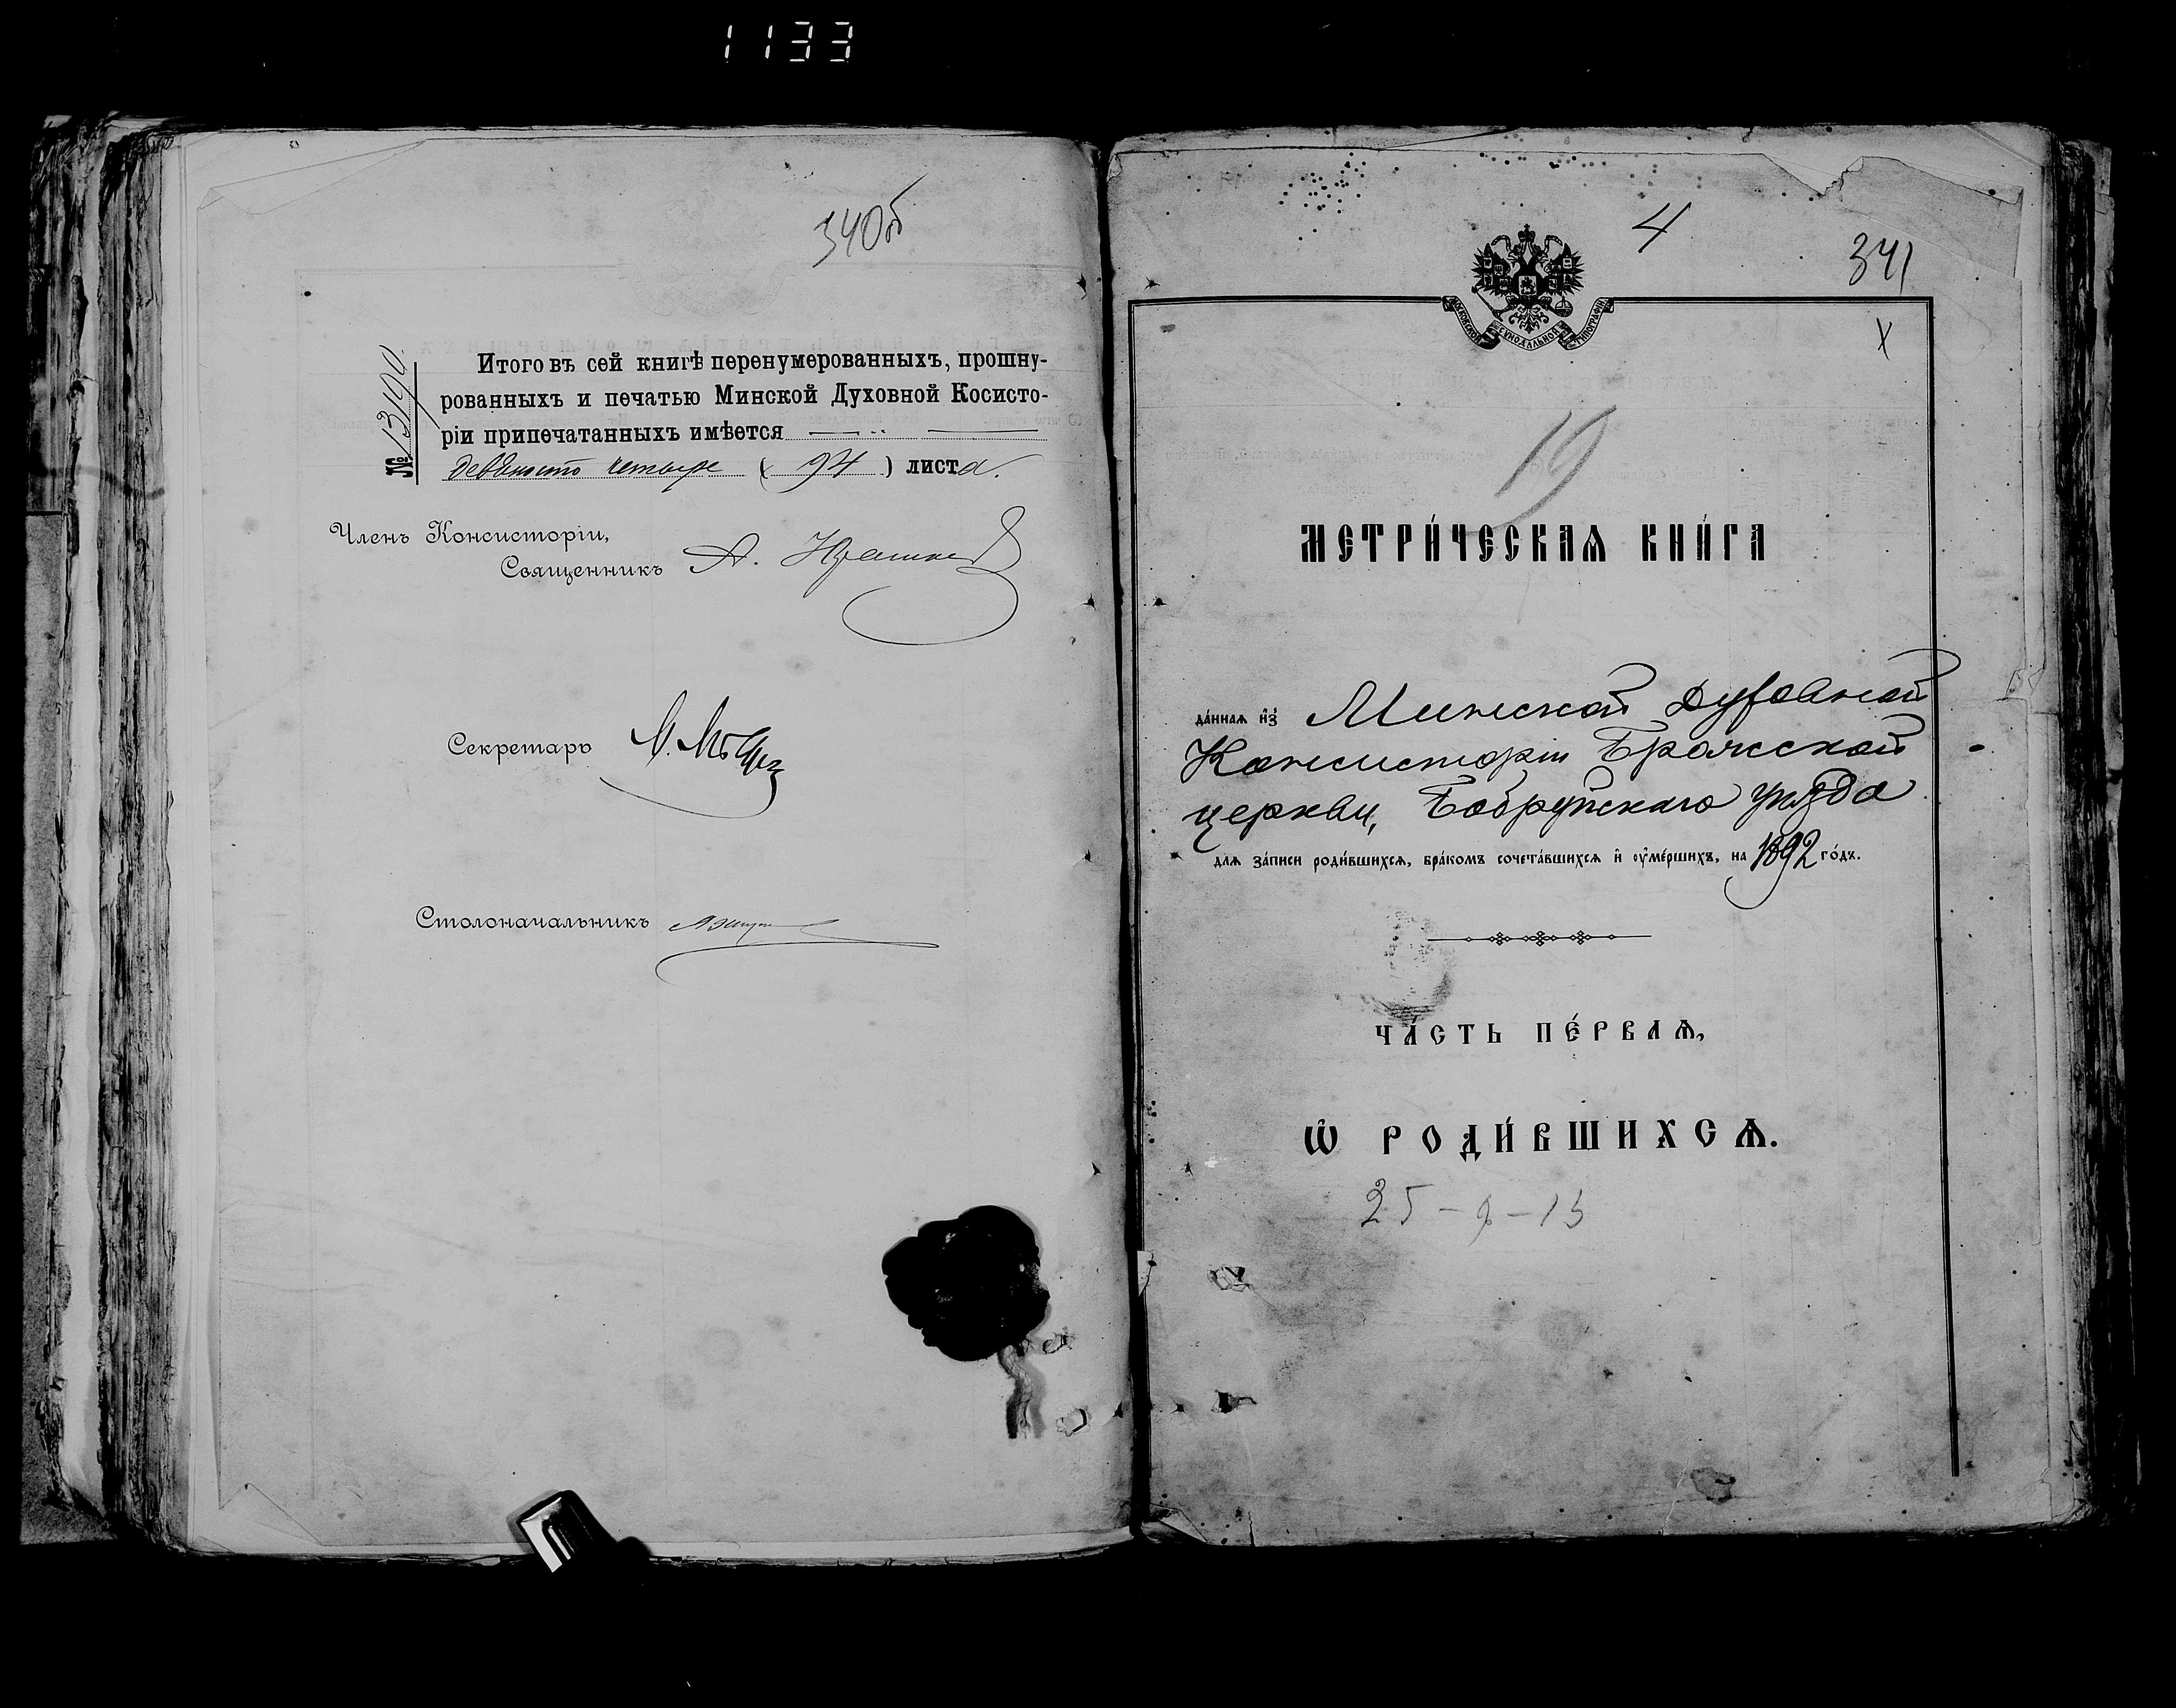 1133
340об
№ 13190.
Итого въ сей книгѣ перенумерованныхъ, прошну-
рованныхъ и печатью Минской Духовной Косисто-
ріи припечатанныхъ имѣется
девяносто четыре ( 94 ) листа.
Членъ Консисторіи,
Священникъ А.
Секретарь
Столоначальникъ
4
341
X
МОСКОВСКОЙ СѴНОДАЛЬНОЙ ТИПОГРАФІИ
19
МЕТРИ́ЧЕСКАѦ КНИ́ГА
да́ннаѧ и҆з̾ Минской Духовной
Консисторіи Брожской
церкви, Бобруйскаго уѣзда
длѧ за́писи роди́вшихсѧ, бра́комъ сочета́вшихсѧ и҆ ѹ҆ме́ршихъ, на 1892 го́дъ.
ЧА́СТЬ ПЕ́РВАѦ,
Ѽ РОДИ́ВШИХСѦ.
25-9-13